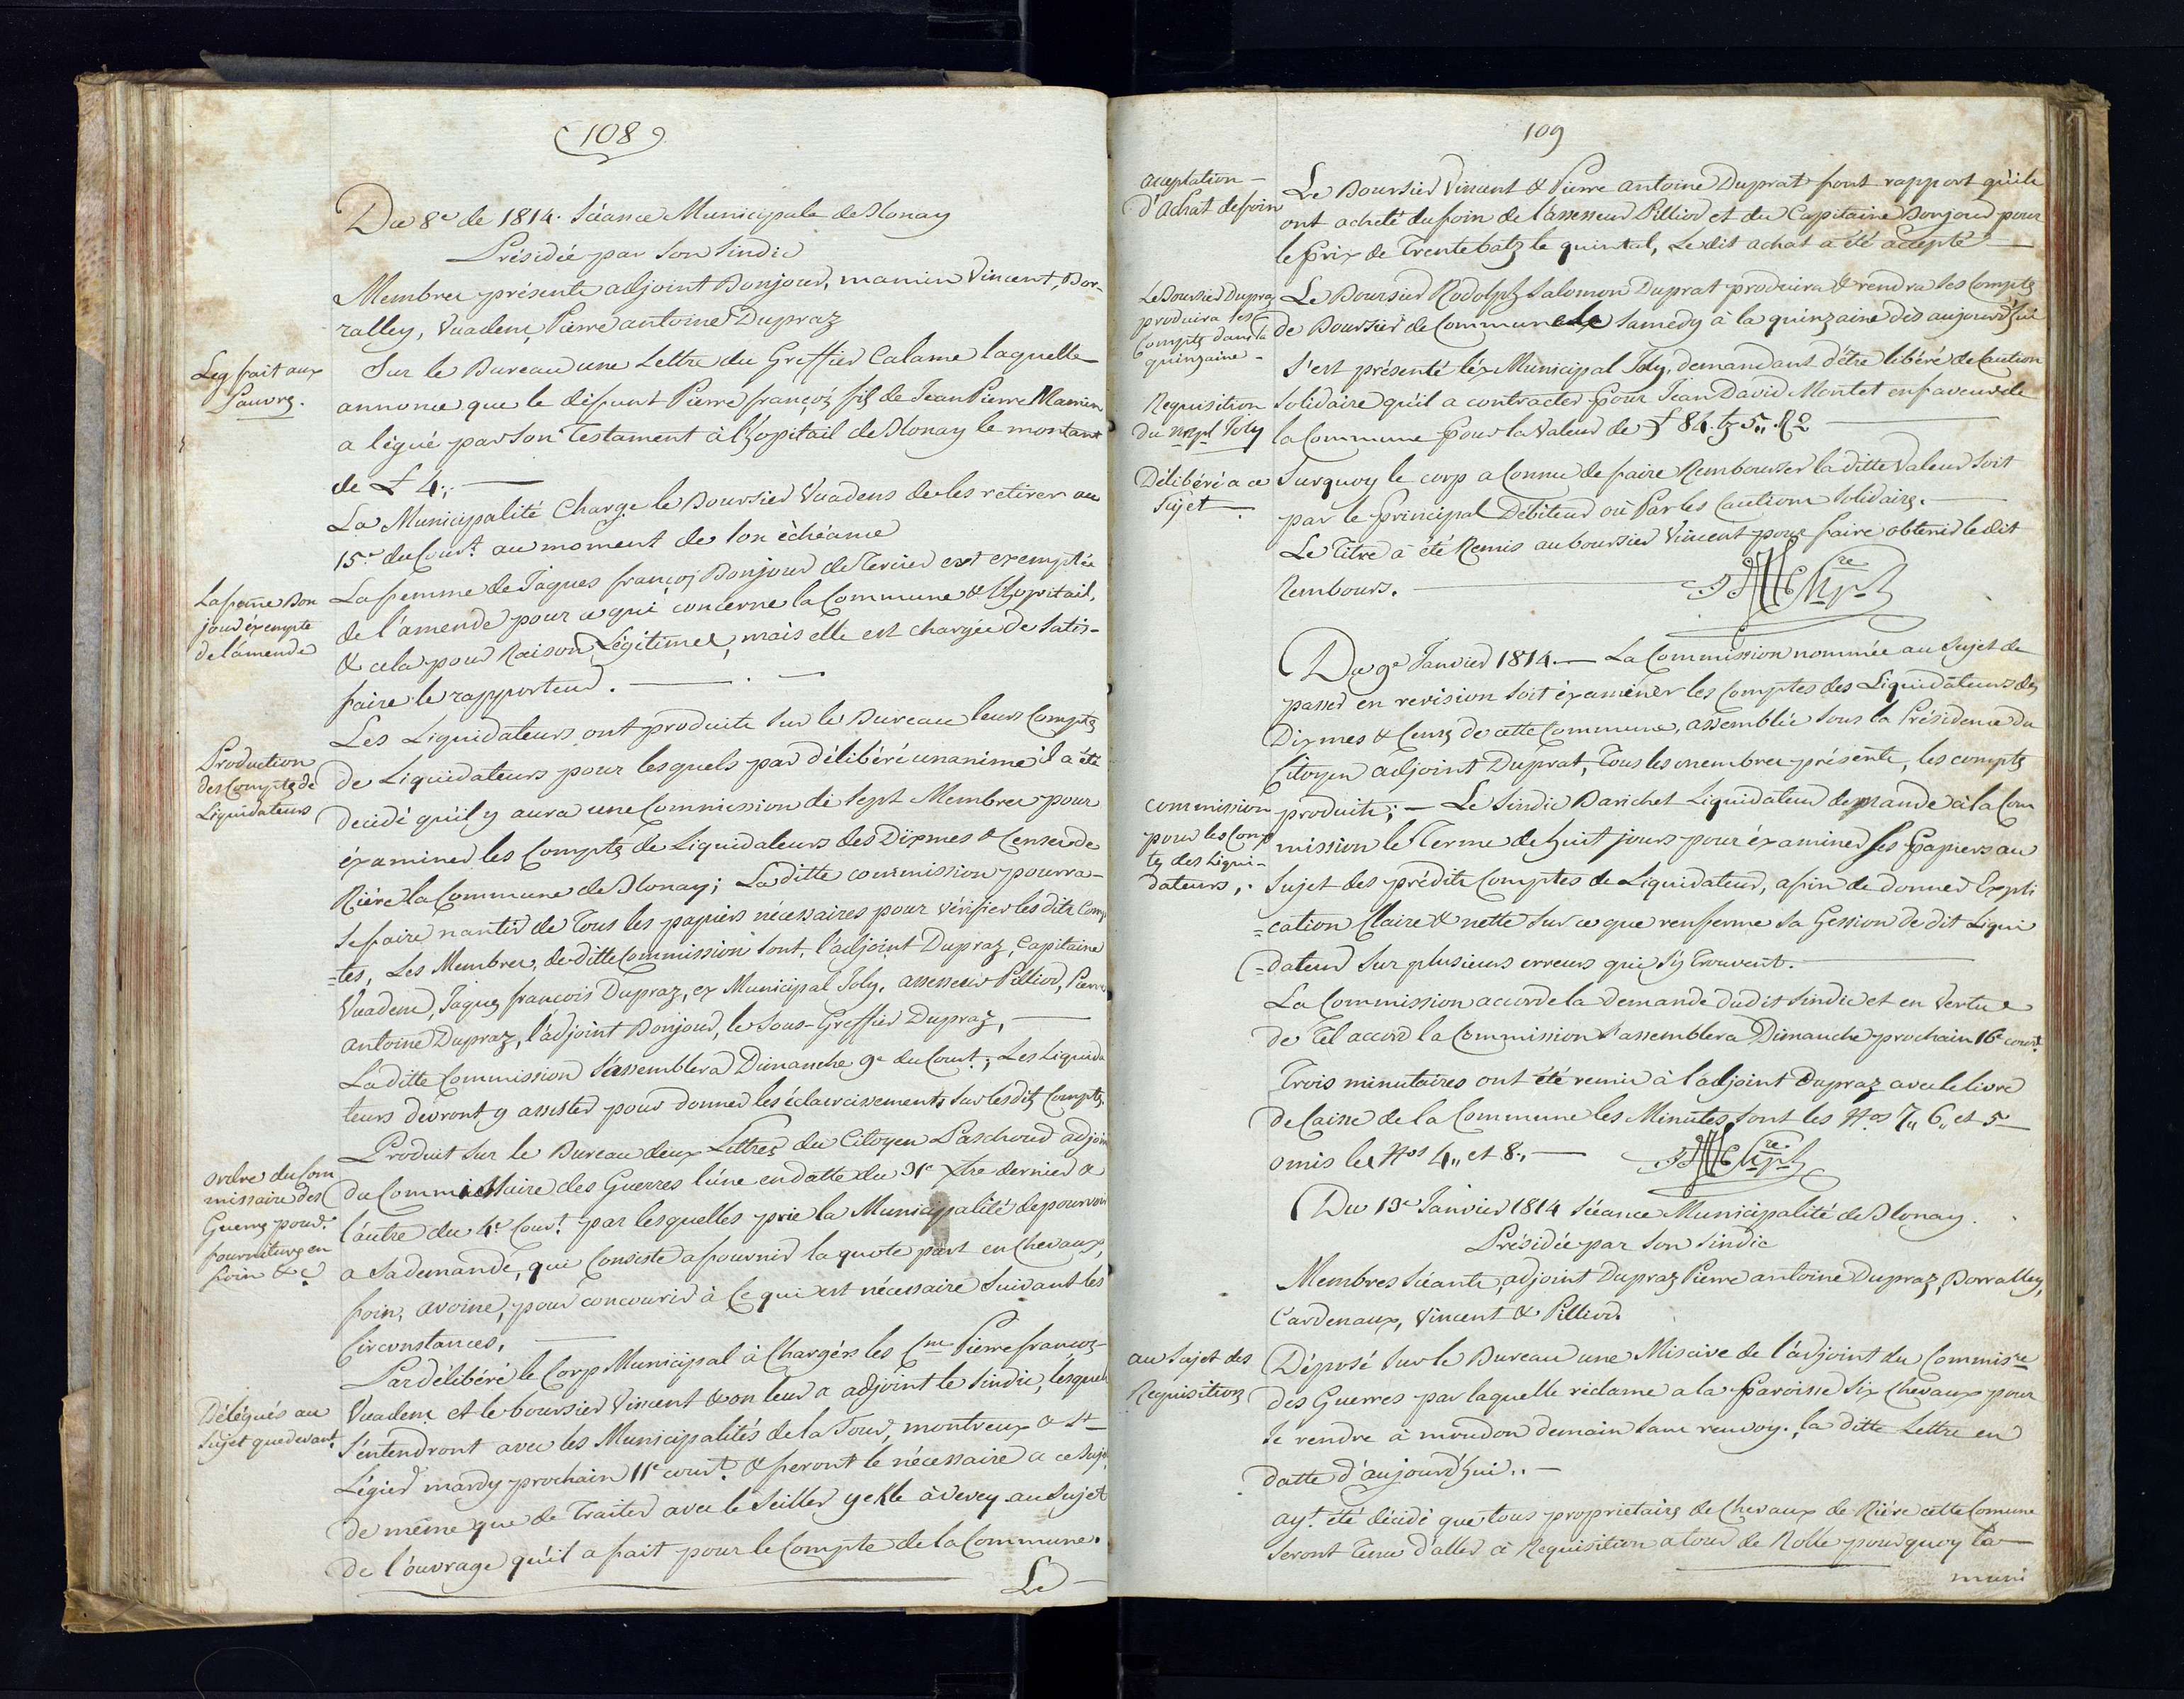 108
Du 8e de 1814. Séance Municipale de Blonay
Présidée par Son Sindic
Membres présents adjoint Bonjour, mamin Vincent, Bor-
ralley, Vuadens, Pierre antoine Dupraz
Leg fait aux
Pauvrs.
Sur le Bureau une Lettre du Greffier Calame laquelle
annonce que le défunt Pierre françois fils de Jean Pierre Mamin
a légué par Son Testament à l'hopitail de Blonay le montant
de £ 4,,
La Municipalité Charge le Boursier Vuadens de les retirer au
15e du Court. au moment de son èchéance
La feme Bon
jour éxempte
de l'amende
La femme de Jaques françois Bonjour de Tercier est exemptée
de l'amende pour ce qui concerne la Commune & l'hopitail,
& cela pour Raison Légitimes, mais elle est chargée de Satis-
faire le rapporteur.
Production
des Compts de
Liquidateurs
Les Liquidateurs ont produits Sur le Bureau leurs Compts
de Liquidateurs pour lesquels par délibéré unanime il a été
decidé qu'il y aura une Commission de Sept Membres pour
éxaminer les Compts de Liquidateurs des Dixmes & Censes de
Riére la Commune de Blonay; La ditte commission pourra
Se faire nantir de Tous les papiers nécessaires pour vérifier les dits Comp
=tes, Les Membres, de ditte Commission Sont, l'adjoint Dupraz, Capitaine
Vuadens, Jaques francois Dupraz, ex Municipal Joly, assesseur Pilliod, Pierre
antoine Dupraz, l'adjoint Bonjour, le Sous-Greffier Dupraz,
La ditte Commission S'assemblera Dimanche 9e du Court.; Les Liquida
teurs devront y assister pour donner les éclaircissements Sur lesdits Compts.
ordre du Com
missaire des
Guerrs pour
fournitures en
foin &c
Produit Sur le Bureau deux Lettres du Citoyen Paschoud adjoin
du Commissaire des Guerres l'une en datte du 31e Xbre dernier &
l'autre du 4e Court. par lesquelles prie la Municipalité de pourvoir
a Sa demande, qui Consiste a fournir la quote part en Chevaux,
foin, avoine, pour concourir à Ce qui est nécessaire Suivant les
Circonstances.
Délégués au
Sujet que devant.
Par délibéré le Corp Municipal à Chargés les Cns Pierre françois
Vuadens et le boursier Vincent & on leur a adjoint le Sindic, lesquels
S'entendront avec les Municipalités de la Tour, montreux & St
Légier mardy prochain 11e court. & feront le nécessaire a ce Sujet,
de même que de Traiter avec le Seiller yekle à Vevey au Sujet
de l'ouvrage qu'il a fait pour le Compte de la Commune.
Le
109
acceptation
d'Achat de foin
Le Boursier Vincent & Pierre antoine Duprat font rapport qu'ils
ont acheté du foin de l'assesseur Pilliod et du Capitaine Bonjour pour
le prix de Trente batz le quintal, Le dit achat a été accepté
Le Boursier Dupraz
produira ses
Compts dans la
quinzaine
Le Boursier Rodolph Salomon Duprat produira & rendra Ses Compts
de Boursier de Commune le Samedy à la quinzaine dès aujourd'hui
Requisition
du Mcpl Joly
S'est présenté l'éx Municipal Joly, demandant d'être libéré de Caution
Solidaire qu'il a contracter pour Jean David Montet en faveur de
la Commune pour la Valeur de £ 84. bz 5,, R 2
Délibéré a ce
Sujet
Surquoy le corp a Connu de faire Rembourser la ditte Valeur Soit
par le principal Débiteur où Par les Cautions Solidairs.
Le Titre à été Remis au boursier Vincent pour faire obtenir le dit
Rembours.
Du 9e Janvier 1814. — La Commission nommée au Sujet de
passer en revision Soit éxaminér les Comptes des Liquidateurs des
Dixmes & Cens de cette Commune, assemblée Sous la Présidence du
Citoyen adjoint Duprat, Tous les membres présents, les compts
commission
pour les Comp
ts des Liqui-
dateurs,.
produits; — Le Sindic Barichet Liquidateur demande à la Com
mission le Terme de huit jours pour éxaminer Ses Papiers au
Sujet des prédits Comptes de Liquidateur, afin de donner Expli
=cation Claire & nette Sur ce que renferme Sa Gession de dit Liqui
=dateur Sur plusieurs erreurs qui S'y Trouvent.
La Commission accorde la demande dudit Sindic et en Vertu
de Tel accord la Commission S'assemblera Dimanche prochain 16e court.
Trois minutaires ont été remis à l'adjoint Dupraz avec le livre
de Caisse de la Commune les Minutes Sont les Nos 7,, 6,, et 5
omis les Nos 4,, et 8,,
Du 13e Janvier 1814 Séance Municipalité de Blonay.
Présidée par Son Sindic
Membres Séants, adjoint Dupraz Pierre antoine Dupraz, Borralley,
Cardenaux, Vincent & Pilliod.
au Sujet des
Requisitions
Déposé Sur le Bureau une Missive de l'adjoint du Commisre
des Guerres par laquelle réclame a la Paroisse Six Chevaux pour
Se rendre à moudon demain Sans renvoy. la ditte Lettre en
datte d'aujourd'hui..
ayt. été décidé que tous proprietairs de Chevaux de Riére cette Comune
Seront Tenu d'aller à Requisition a tour de Rolle pourquoy la
muni